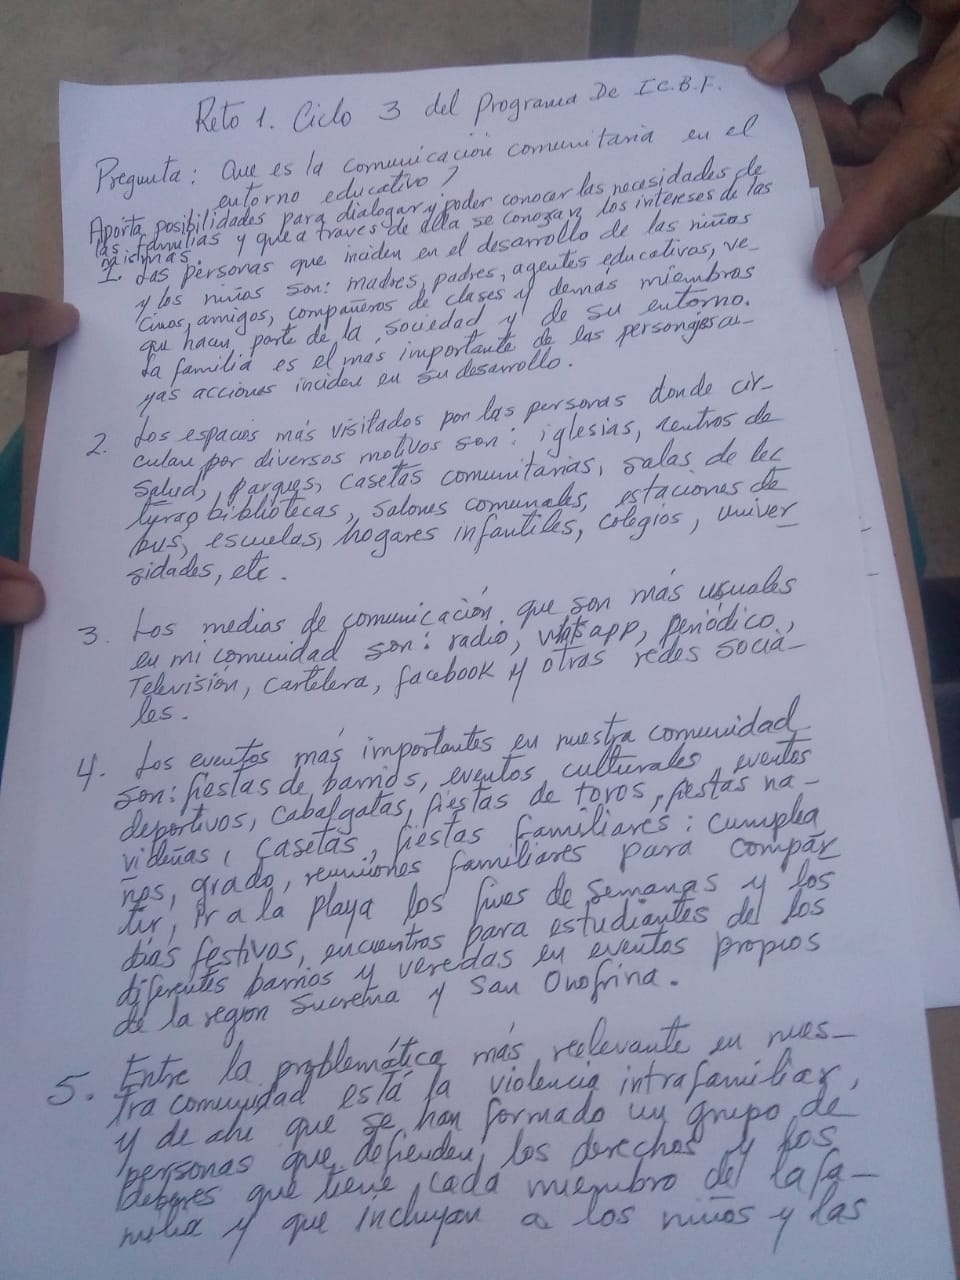 Reto 1. Ciclo 3 del programa De I.C.B.F.
Pregunta: Que es la comunicación comunitaria en el
entorno educativo?
Aporta posibilidades para dialogar y poder conocer las necesidades de
las familias y que a traves de ella se conozcan los intereses de las
mismas.
1. Las personas que inciden en el desarrollo de las niñas
y los niños son: madres, padres, agentes educativos, ve-
cinos, amigos, compañeros de clases y demás miembros
que hacen parte de la sociedad y de su entorno.
La familia es el mas importante de las personajes cu-
yas acciones inciden en su desarrollo.
2. Los espacios más visitados por las personas donde cir-
culan por diversos motivos son: iglesias, centros de
salud, parques, casetas comunitarias, salas de lec
tura o bibliotecas, salones comunales, estaciones de
bus, escuelas, hogares infantiles, colegios, univer
sidades, etc.
3. Los medios de comunicación que son más usuales
en mi comunidad son: radio, whatsapp, periódico,
Televisión, cartelera, facebook y otras redes socia-
les.
4. Los eventos más importantes en nuestra comunidad
son: fiestas de barrios, eventos culturales, eventos
deportivos, cabalgatas, fiestas de toros, fiestas na-
videñas, casetas, fiestas familiares: cumplea
ños, grado, reuniones familiares para compar
tir, ir a la playa los fines de semanas y los
días festivos, encuentros para estudiantes de los
diferentes barrios y veredas en eventos propios
de la región Sucreña y San Onofrina.
5. Entre la problemática más relevante en nues-
tra comunidad está la violencia intrafamiliar,
y de ahí que se han formado un grupo de
personas que defienden los derechos y los
deberes que tiene cada miembro de la fa-
milia y que incluyan a los niños y las